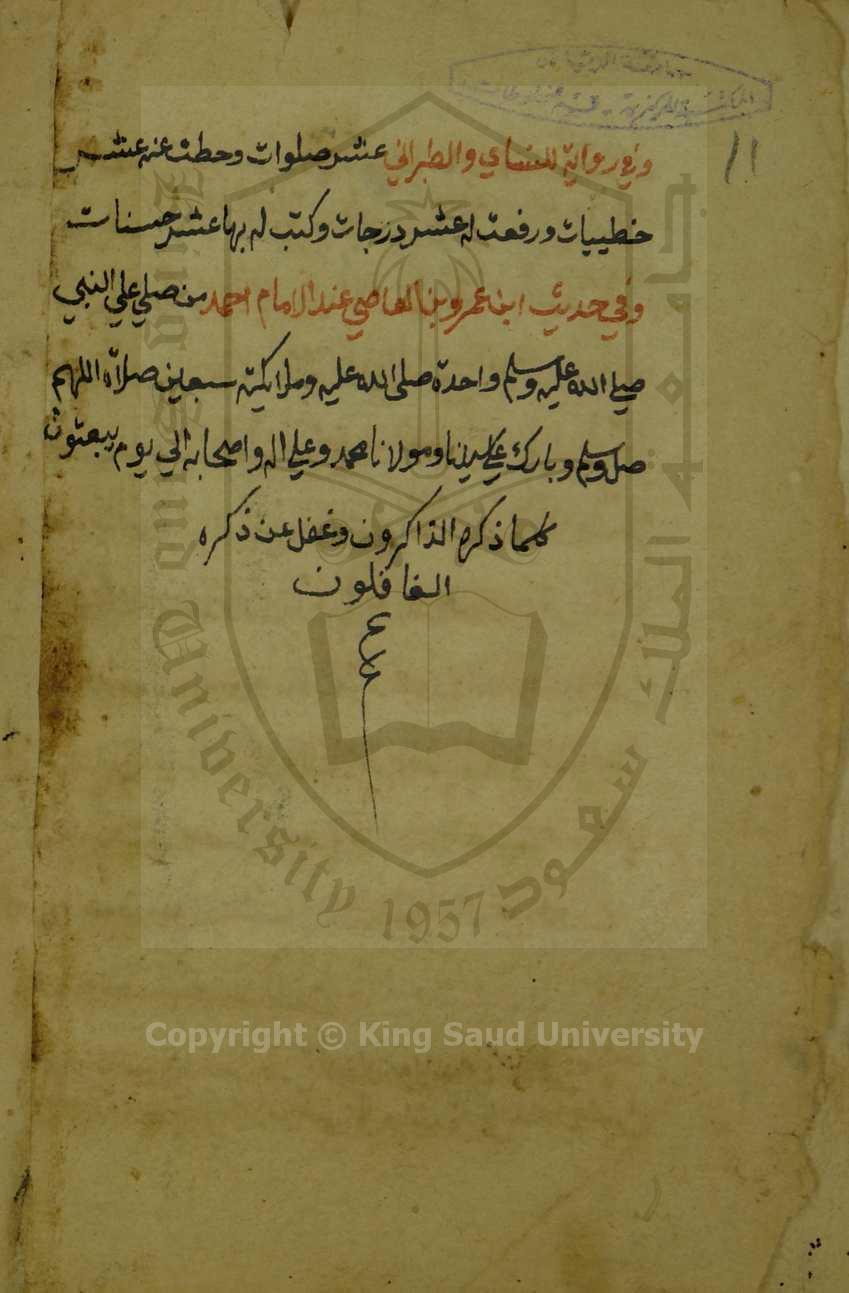 وفي رواية للنساي والطبراني عشر صلوات وحطت عنه عشر
خطييات ورفعت له عشر درجات وكتب له بها عشر حسنات
وفي حديث ابن عمرو بن العاصي عند الامام احمد من صلي علي النبي
صلي الله عليه وسلم واحدة صلى الله عليه وملايكته سبعين صلاة اللهم
صل وسلم وبارك علي سيدنا ومولانا محمد وعلي اله واصحابه الي يوم يبعثون
كلما ذكره الذاكرون وغفل عن ذكره
الغافلون
11
King Saud University 1957
جامعة الملك سعود
Copyright © King Saud University